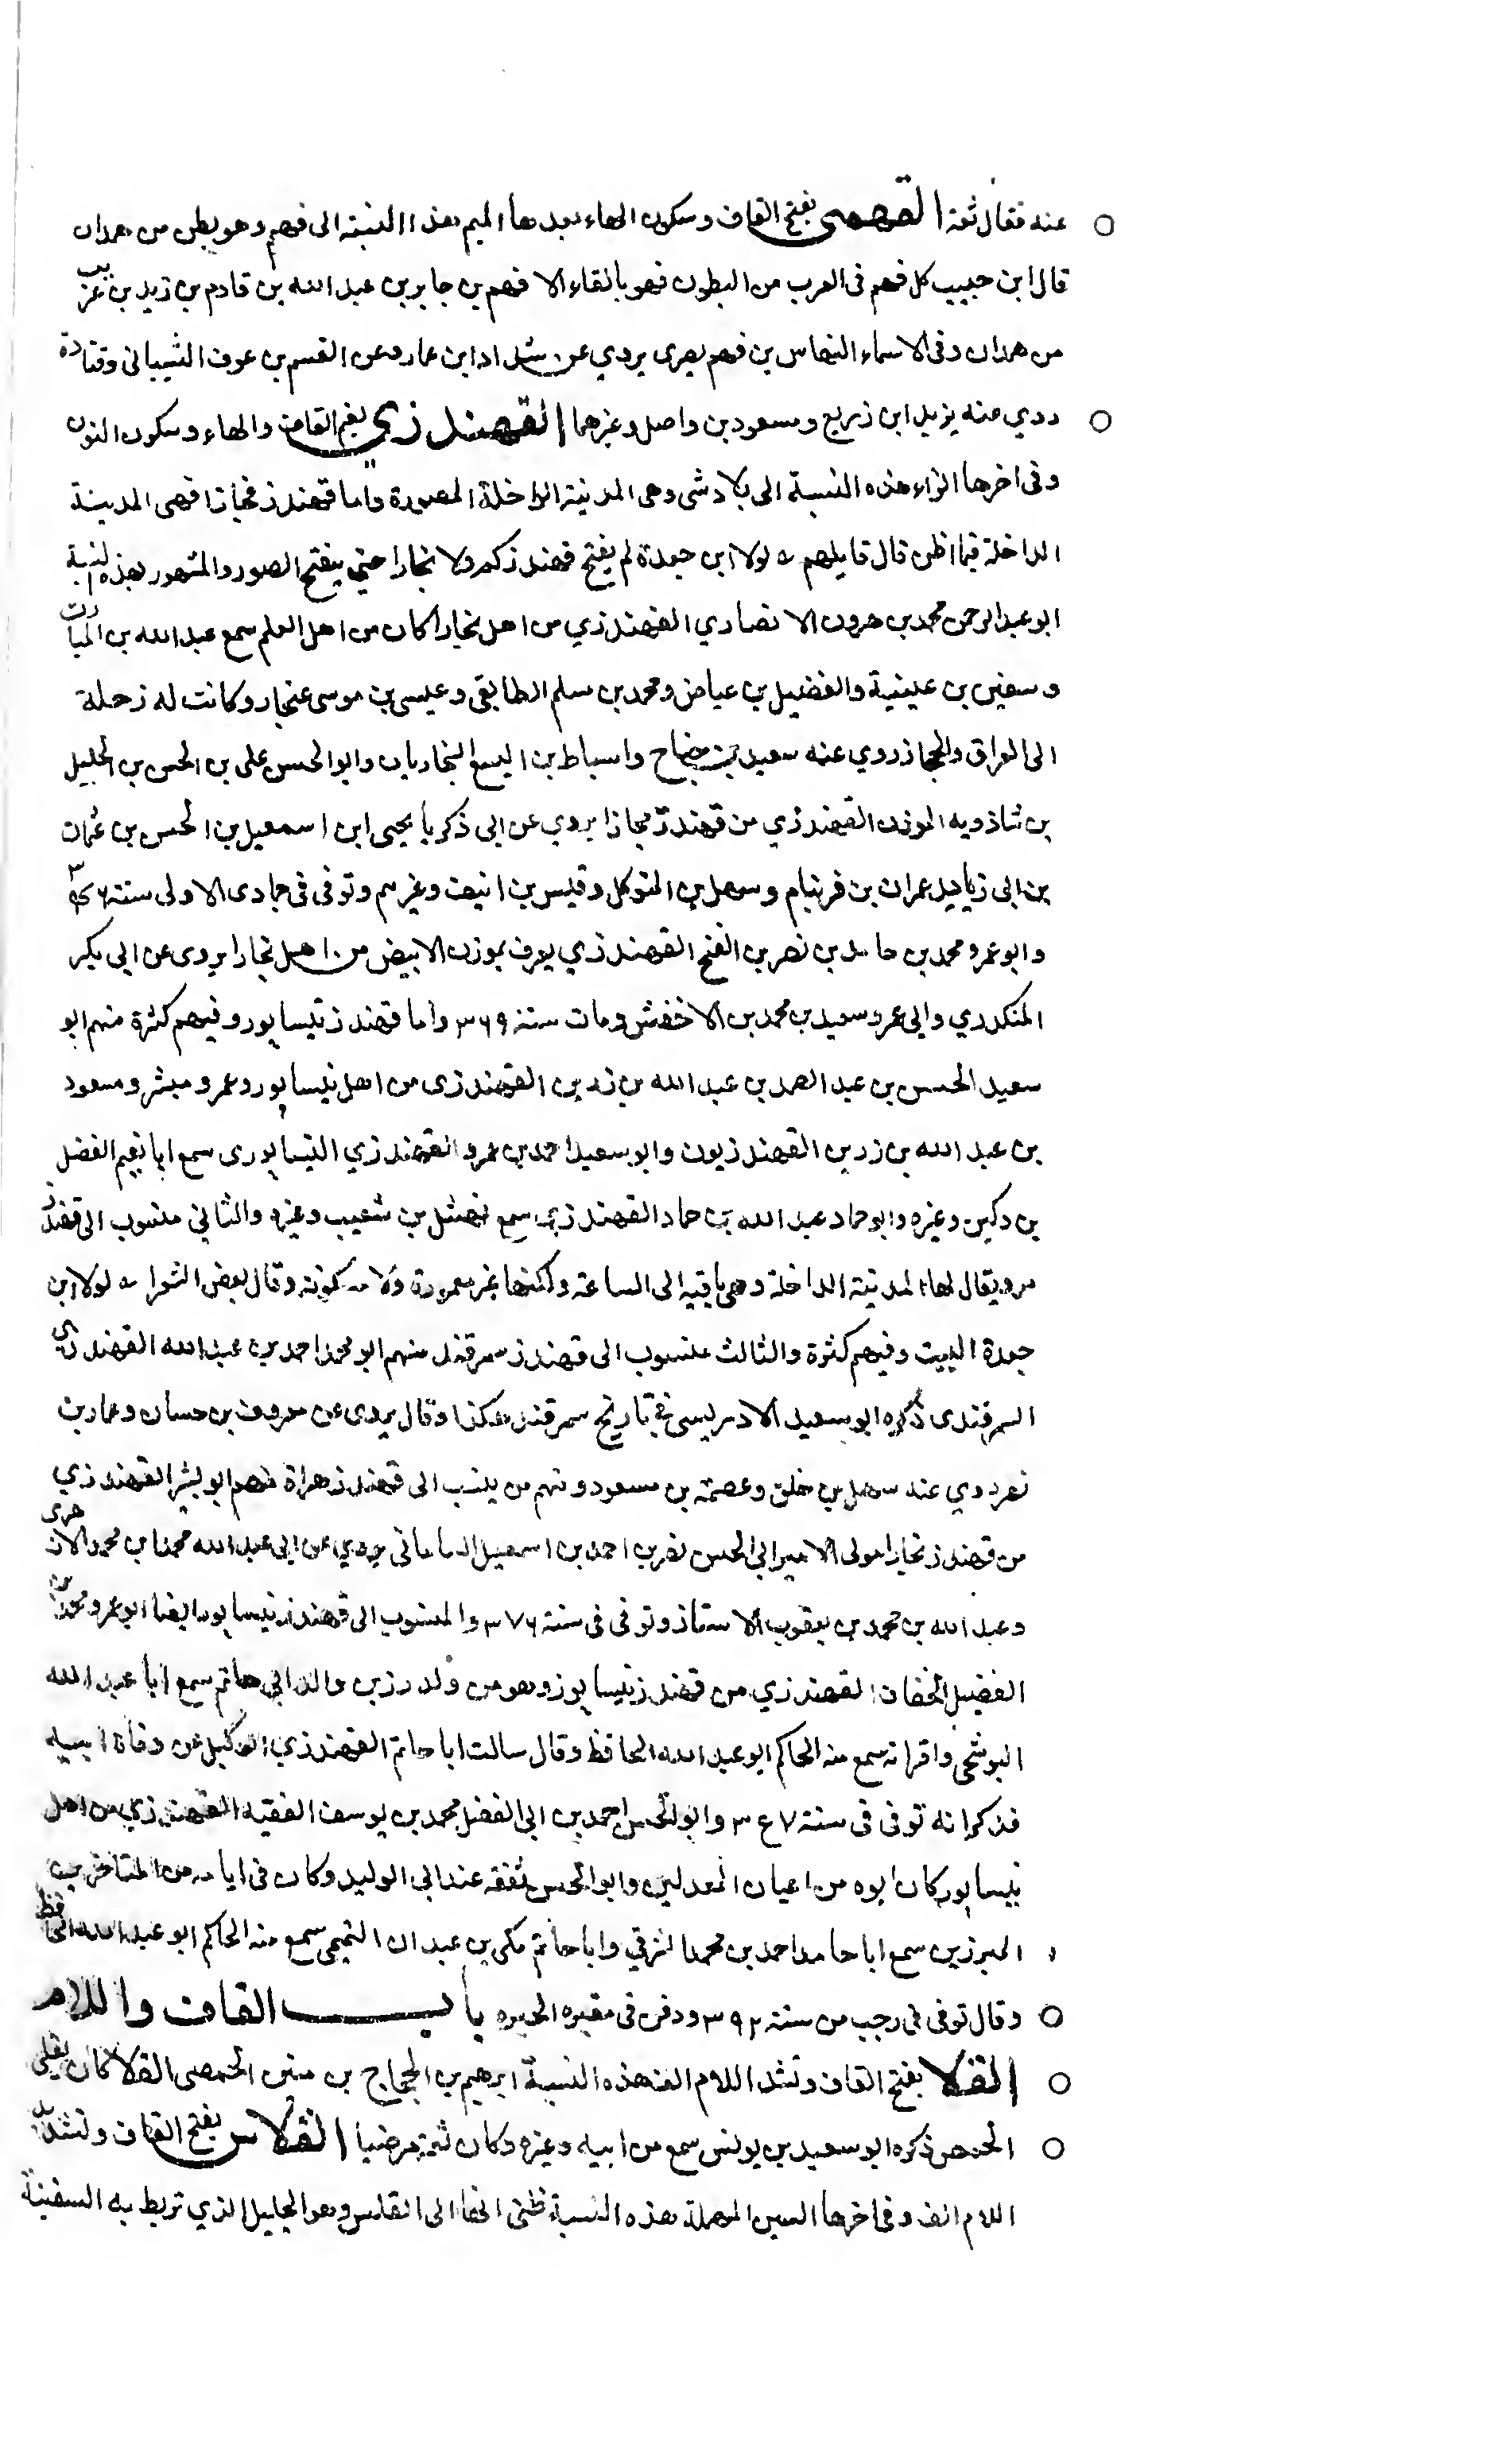 عنه فقال ثقة القهمي بفتح القاف وسكون الهاء بعدها الميم هذا النسبة الى قهم وهو بطن من همدان
قال ابن حبيب كل فهم فى العرب من البطون فهو بالفاء الا قهم بن جابر بن عبد الله بن قادم بن زيد بن عريب
من همدان وفى الاسماء النهاس بن قهم بصرى يروي عن شداد ابن عمار وعن القسم بن عوف الشيبانى وقتادة
روي عنه يزيد ابن زريع ومسعود بن واصل وغيرهما القهندزي بضم القاف والهاء وسكون النون
وفى اخرها الزاء هذه النسبة الى بلاد شى وهى المدينة الداخلة المصورة واما قهندز بخارا فهى المدينة
الداخلة فيما اظن قال قايلهم لولا ابن جعدة لم يفتح قهندزكم ولا بخارا حتى يفتح الصور والمشهور بهذه النسبة
ابو عبد الرحمن محمد بن هرون الانصاري القهندزي من اهل بخارا كان من اهل العلم سمع عبد الله بن المبارك
وسفين بن عيينة والفضيل بن عياض ومحمد بن سلم الطايفى وعيسى بن موسى غنجار وكانت له رحلة
الى العراق والحجاز روي عنه سعيد بن جناح واسباط بن اليسع البخاريان وابو الحسن على بن الحسن بن الجليل
بن شاذويه الموزن القهندزي من قهندز بخارا يروي عن ابى ذكريا يحيى ابن اسمعيل بن الحسن بن عثمان
بن ابى عمران بن وسهل بن المتوكل وقيس بن انيف وغيرهم وتوفى فى جمادى الاولى سنة
وابو عمرو محمد بن حامد بن نصر بن الفتح القهندزي يعرف بموزن الابيض من اهل بخارا يروى عن ابى بكر
المنكدري وابى عمرو سعيد بن محمد بن الاخفش ومات سنة ٣٦٩ واما قهندز نيسابور وفيهم كثرة منهم ابو
سعيد الحسن بن عبد الصمد بن عبد الله بن زرين القهندزى من اهل نيسابور وعمرو مبشر ومسعود
بن عبد الله بن زرين القهندزيون وابو سعيد احمد بن عمرو القهندزي النيسابورى سمع ابا نعيم الفضل
بن دكين وغيره وابو حماد عبد الله بن حماد القهندزي سمع نهشل بن شعيب وغيره والثانى منسوب الى قهندز
مرو يقال لها المدينة الداخلة وهى باقية الى الساعة ولكنها غير معمورة ولا مسكونة وقال بعض الشعرا لولا ابن
جعدة البيت وفيهم كثرة والثالث منسوب الى قهندز سمرقند منهم ابو محمد احمد بن عبد الله القهندزي
السمرقندى ذكره ابو سعيد الادريسى فى تاريخ سمرقند هكذا وقال يروى عن معروف بن حسان وعمار بن
نصر روي عنه سهل بن خلف وعصمة بن مسعود ومنهم من ينسب الى قهندز هراة منهم ابو بشر القهندزي
من قهندز بخارا مولى الامير ابى الحسن نصر بن احمد بن اسمعيل السامانى يروي عن ابى عبد الله محمد ابن محمد الازهرى
وعبد الله بن محمد بن يعقوب الاستاذ وتوفى فى سنة ٣٧٦ والمنسوب الى قهندز نيسابور ايضا ابو عمرو محمد بن
الفضيل الخفان القهندزي من قهندز نيسابور وهو من ولد رزين والد ابى حاتم سمع ابا عبد الله
البوشنجى واقرانه سمع منه الحاكم ابو عبد الله الحافظ وقال سالت ابا حاتم القهندزي الوكيل عن وفاة ابيه
فذكر انه توفى فى سنة ٣٤٧ وابو الحسن احمد بن ابى الفضل محمد بن يوسف الفقيه القهندزي من اهل
نيسابور كان ابوه من اعيان المعدلين وابو الحسن تفقه عند ابى الوليد وكان فى ايامه من المتاخرين
المبرزين سمع ابا حامد احمد بن محمد الشرقي وابا حاتم مكى بن عبدان التميمى سمع منه الحاكم ابو عبد الله الحافظ
وقال توفى فى رجب من سنة ٣٩٢ ودفن فى مقبره الحيره باب القاف واللام
القلا بفتح القاف وتشد اللام الف هذه النسبة ابرهيم بن الحجاج بن الحمصى القلا كان يقلى
الحمص ذكره ابو سعيد بن يونس سمع من ابيه وغيره وكان ثقة مرضيا القلاس بفتح القاف وتشديد
اللام الف وفى اخرها السين المهملة هذه النسبة ظنى انها الى القلس وهو الحبل الذي تربط به السفينة